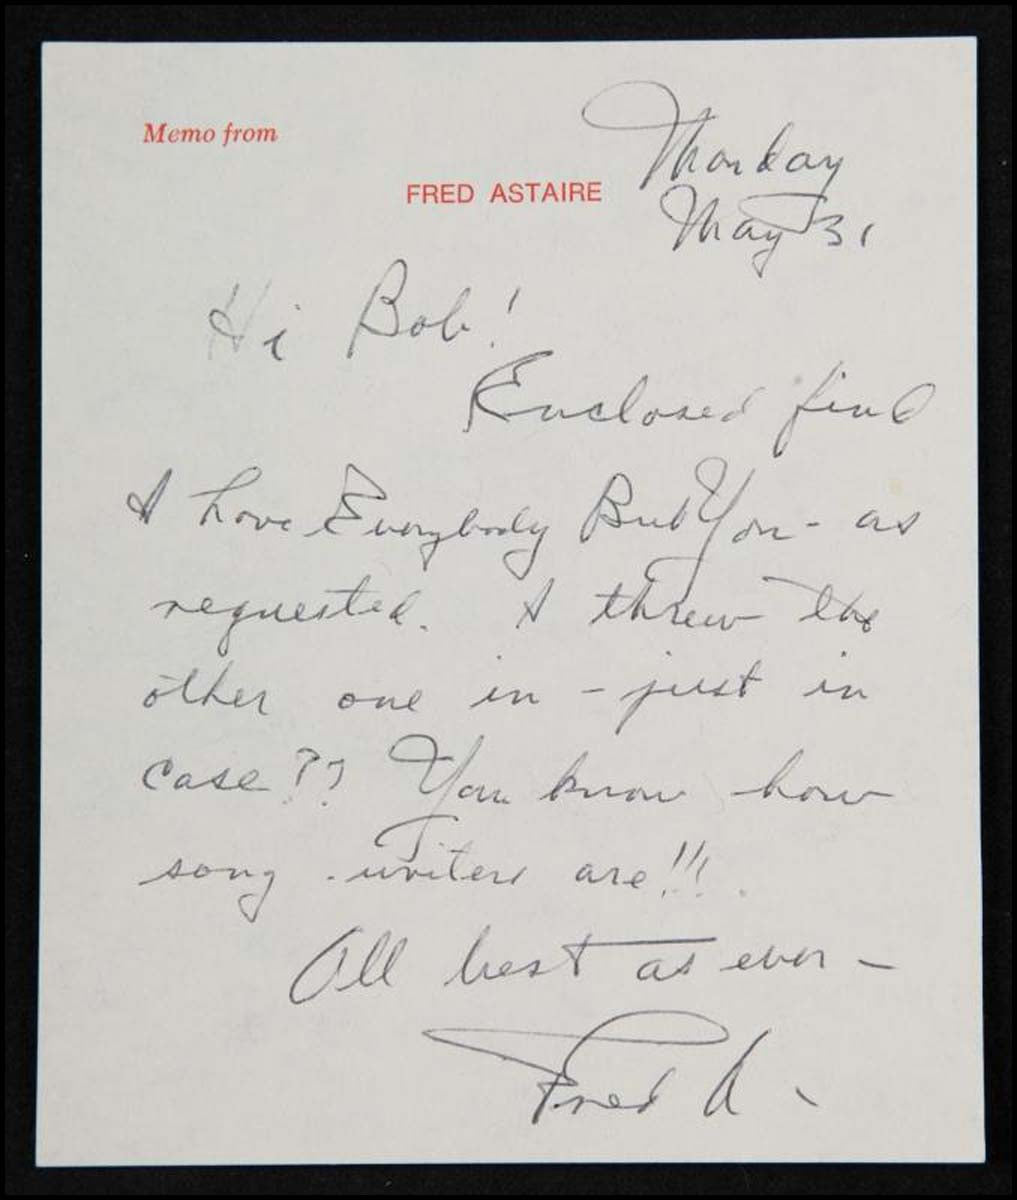 Memo from
FRED ASTAIRE
Monday
May 31
Hi Bob!
Enclosed find
I Love Everybody But You - as
requested. I threw the
other one in - just in
case?? You know how
song-writers are!!!
All best as ever -
Fred A -